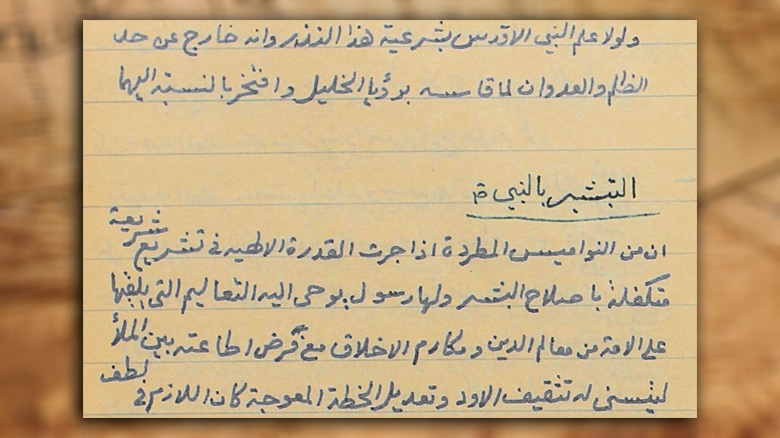 ولولا علم النبي الاقدس بشرعية هذا النذر وانه خارج عن حد
الظلم والعدوان لما قاسه برؤيا الخليل وافتخر بالنسبة اليهما
التبشير بالنبي ص
ان من النواميس المطردة اذا جرت القدرة الالهيه في تشريع شريعة
متكفلة باصلاح البشر ولها رسول يوحى اليه التعاليم التي يلقيها
على الامة من معالم الدين ومكارم الاخلاق مع فرض اطاعته بين الملأ
ليتسنى له تثقيف الاود وتعديل الخطة المعوجة كان اللازم في لطف